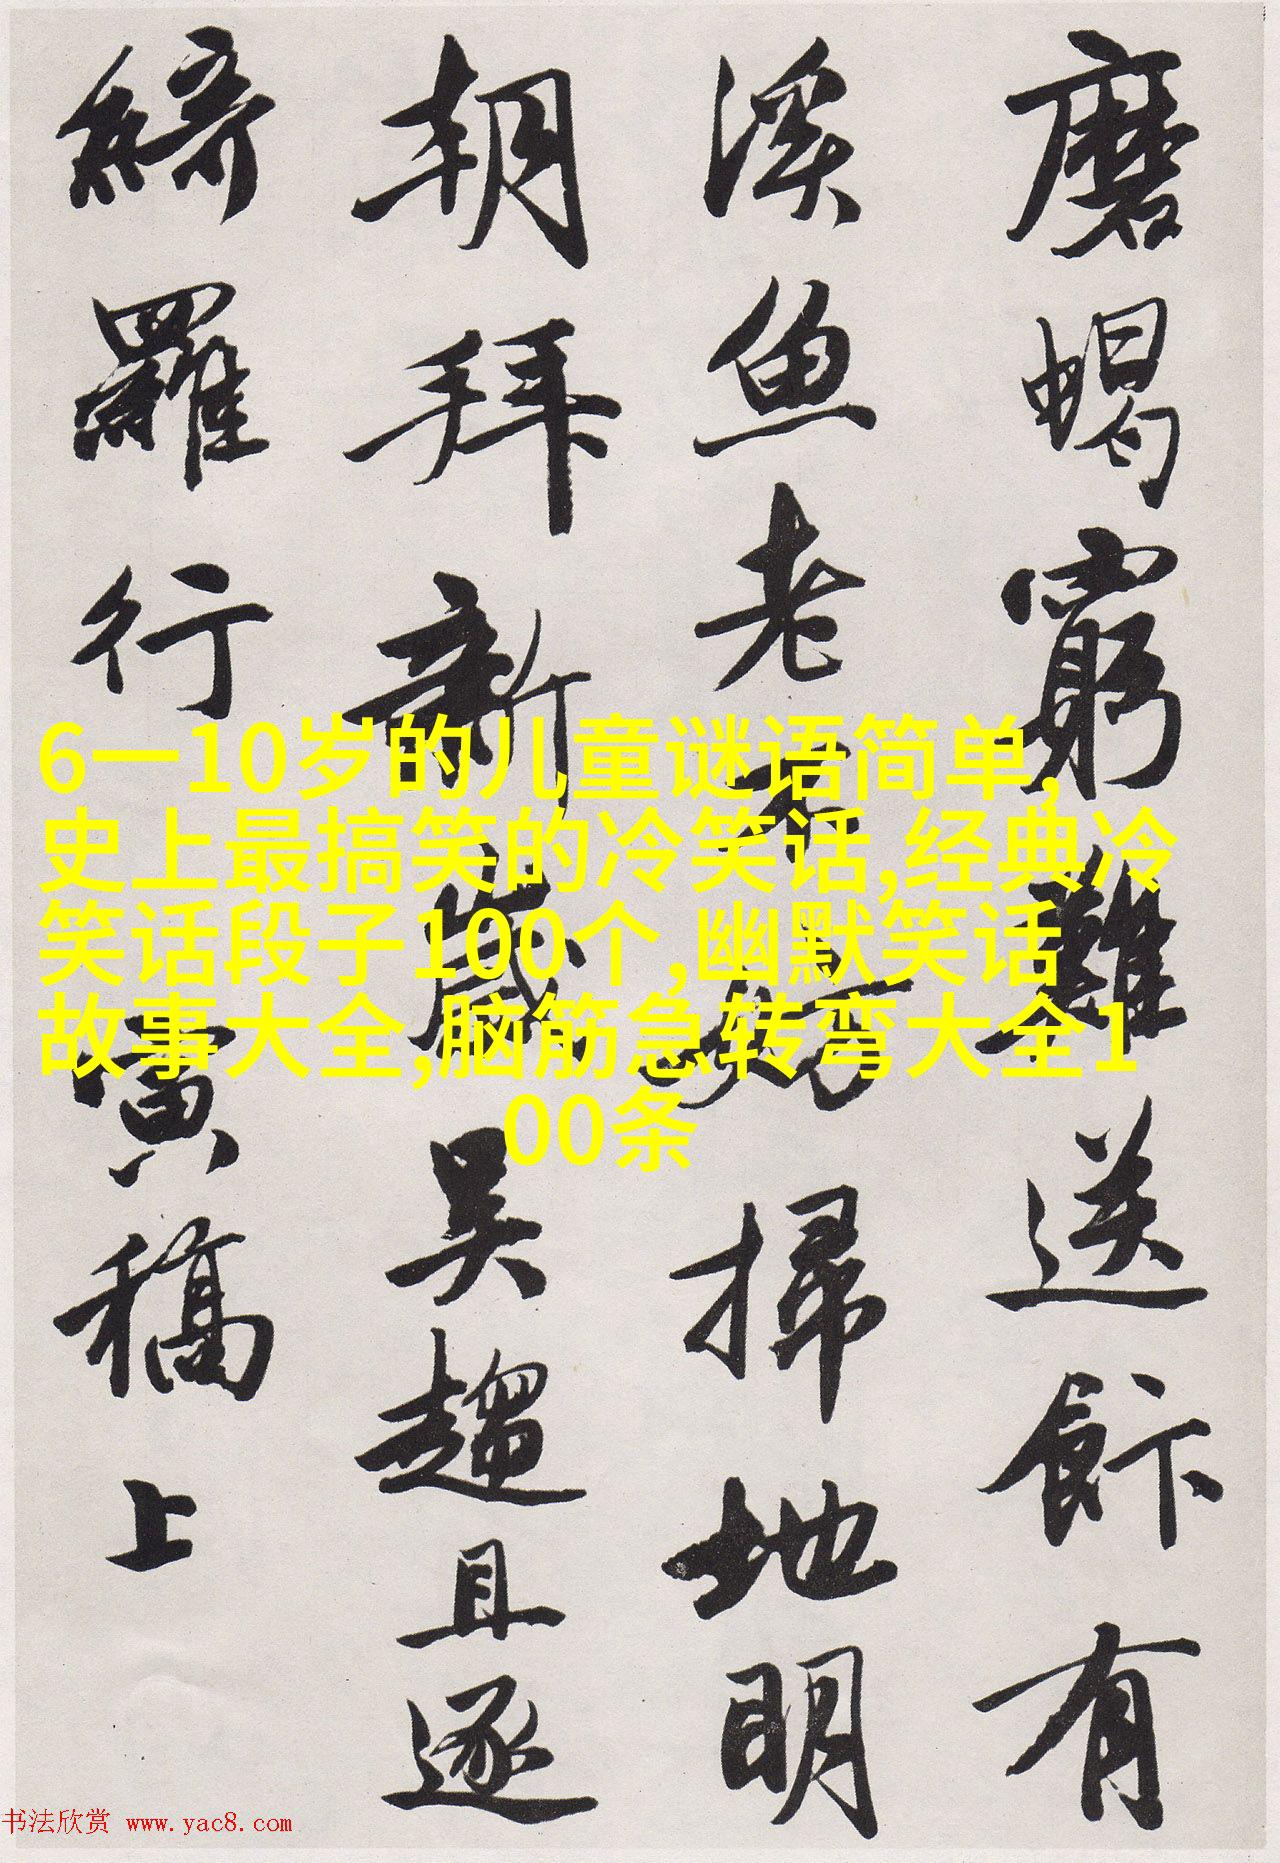 磨蝎窮難送飰有
溪魚老不妨掃地明
朝拜新歲吳趨且逐
綺羅行寅稿上
6一10岁的儿童谜语简单,
史上最搞笑的冷笑话,经典冷
笑话段子100个,幽默笑话
故事大全,脑筋急转弯大全1
00条
书法欣赏 www.yac8.com